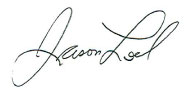 Jason Loel